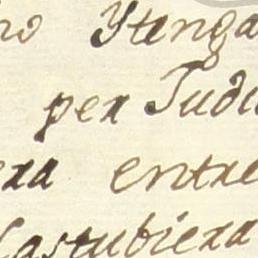 ro Ytenga
per Judi
era entre
Castubiera